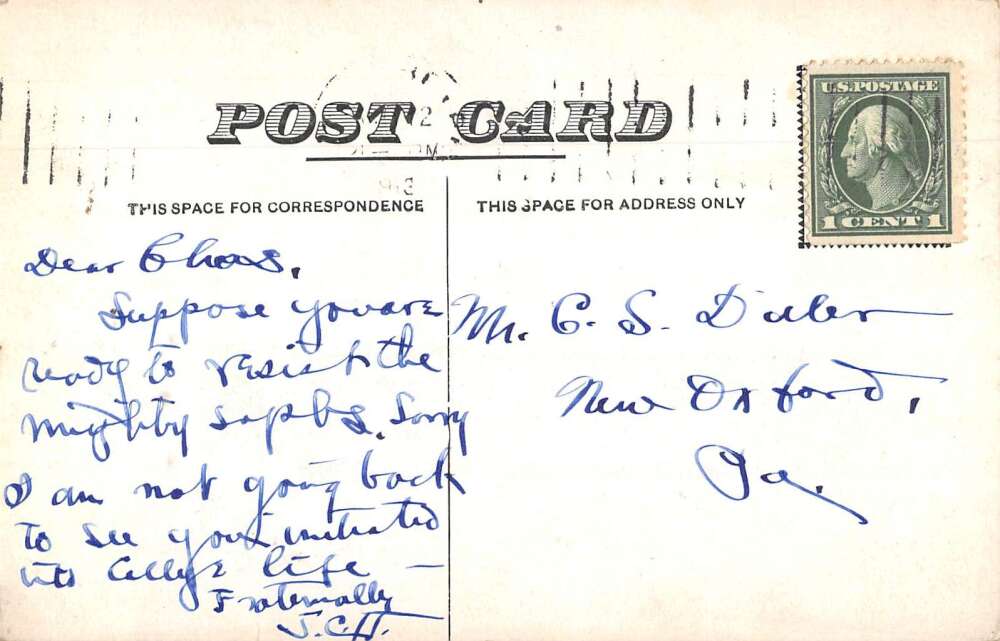 POST CARD
2
M
THIS SPACE FOR CORRESPONDENCE
THIS SPACE FOR ADDRESS ONLY
U.S. POSTAGE
1 CENT 1
Dear Chas.
Suppose you are
ready to resist the
mighty sophs. Sorry
I am not going back
to see you initiated
into College life —
Fraternally
J.C.H.
Mr. C. S. Diller
New Oxford,
Pa.